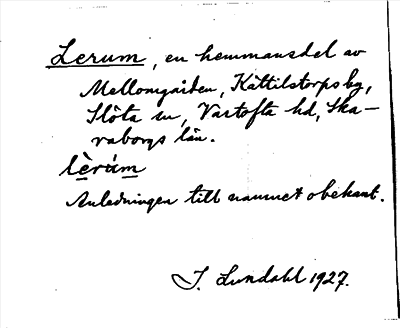 Lerum, en hemmansdel av
Mellomgården, Kättilstorps by,
Slöta sn, Vartofta hd, Ska-
raborgs län.
lè̱rú̱m
Anledningen till namnet obekant.
J. Lundahl 1927.